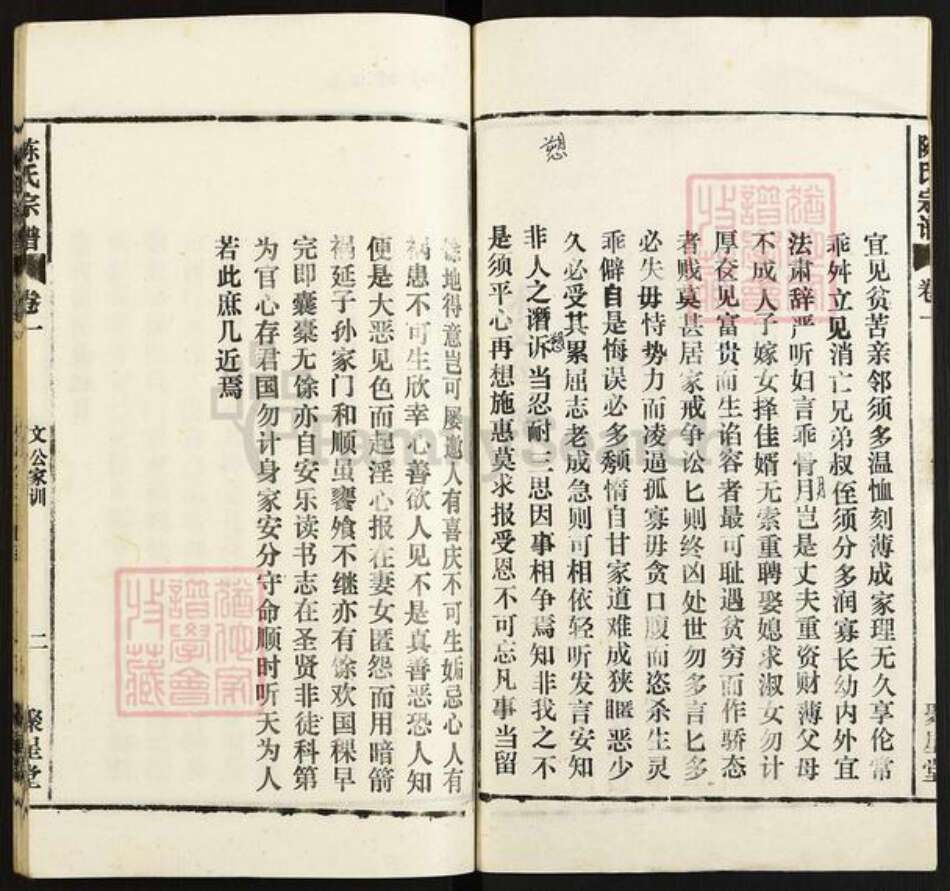 陈氏宗谱
卷一
宜见贫苦亲邻须多温恤刻薄成家理无久享伦常
乖舛立见消亡兄弟叔侄须分多润寡长幼内外宜
法肃辞严听妇言乖骨月岂是丈夫重资财薄父母
不成人子嫁女择佳婿无索重聘娶媳求淑女勿计
厚奁见富贵而生谄容者最可耻遇贫穷而作骄态
者贱莫甚居家戒争讼讼则终凶处世勿多言多
必失毋恃势力而凌逼孤寡毋贪口腹而恣杀生灵
乖僻自是悔误必多颓惰自甘家道难成狭暱恶少
久必受其累屈志老成急则可相依轻听发言安知
非人之谮诉当忍耐三思因事相争焉知非我之不
是须平心再想施惠莫求报受恩不可忘凡事当留
馀地得意岂可屡邀人有喜庆不可生妒忌心人有
祸患不可生欣幸心善欲人见不是真善恶恐人知
便是大恶见色而起淫心报在妻女匿怨而用暗箭
祸延子孙家门和顺虽饔飧不继亦有馀欢国稞早
完即囊橐无馀亦自安乐读书志在圣贤非徒科第
为官心存君国勿计身家安分守命顺时听天为人
若此庶几近焉
陈氏宗谱
卷一
文公家训
二
聚星堂
FamilySearch